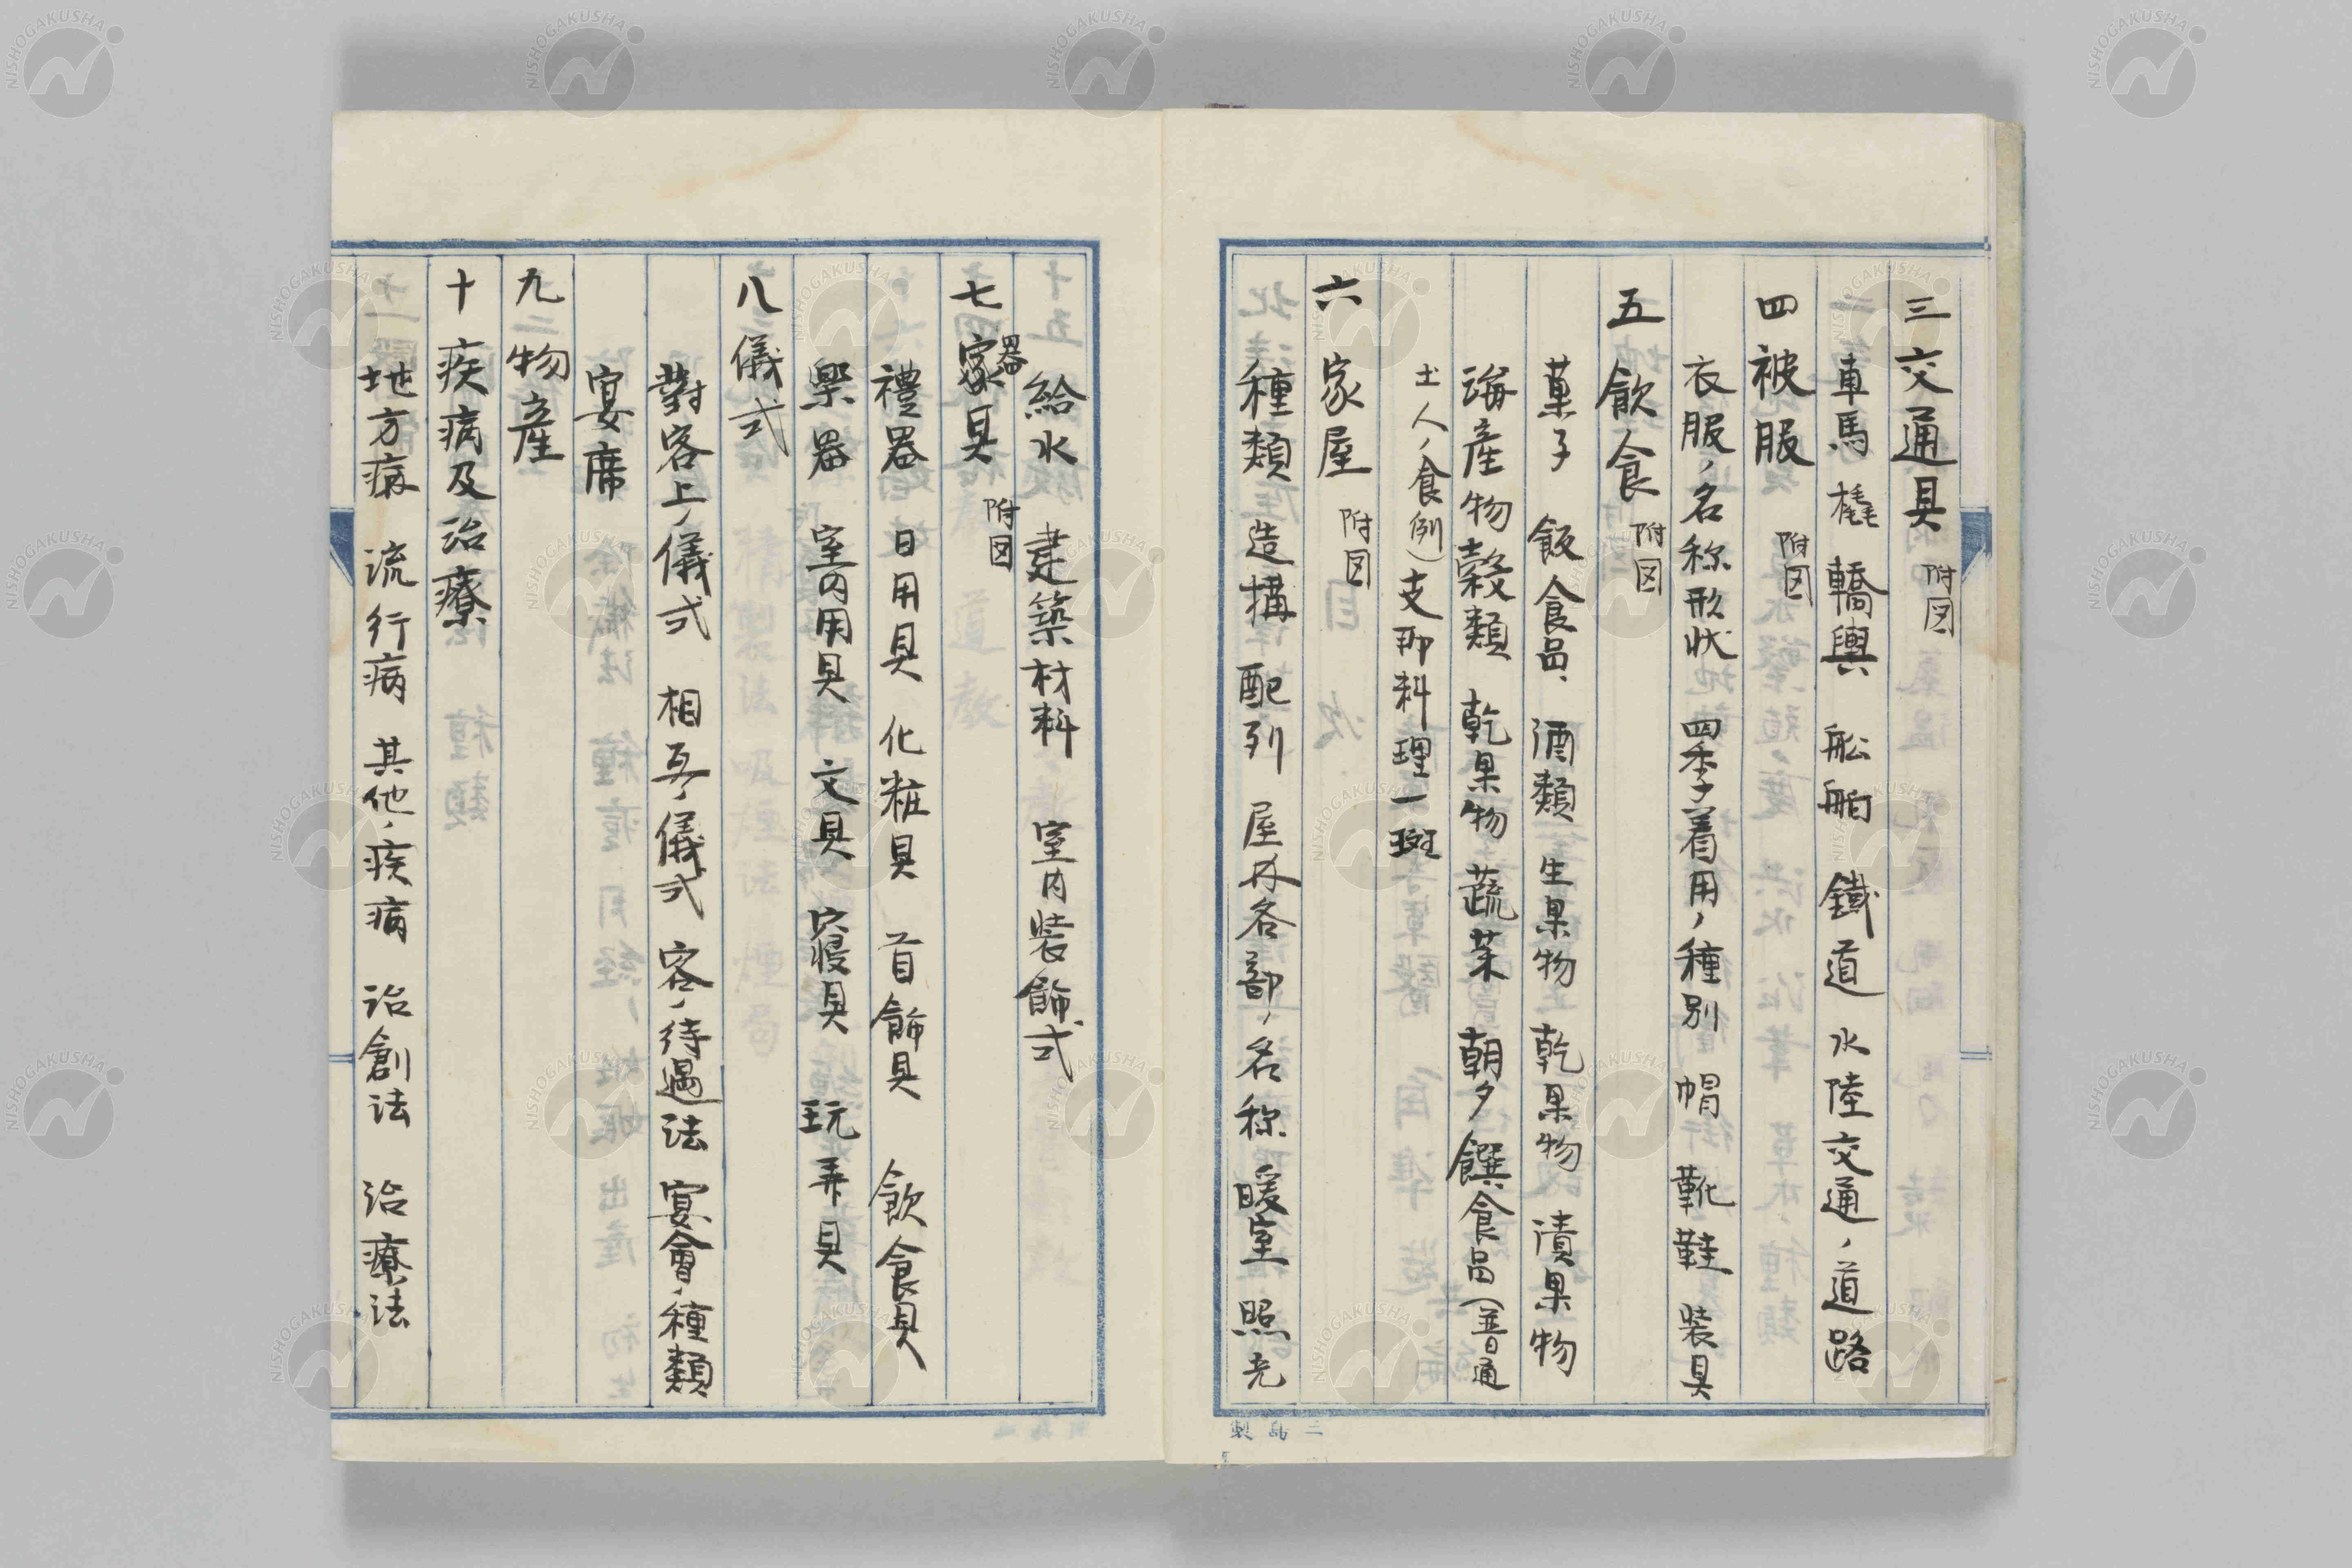 三 交通具 附図
車馬 橇 轎輿 舩舶 鐵道 水陸交通ノ道路
四 被服 附図
衣服ノ名称形状 四季着用ノ種別 帽 靴鞋 装具
五 飲食 附図
菓子 飯食品 酒類 生果物 乾果物 漬果物
海産物 穀類 乾果物 蔬菜 朝夕饌食品(普通
土人ノ食例)支那料理一斑
六 家屋 附図
種類 造搆 配列 屋外各部ノ名称 暖室 照光
給水 建築材料 室内装飾式
七 家具 附図
器
禮器 日用具 化粧具 首飾具 飲食具
樂器 室内用具 文具 寝具 玩弄具
八 儀式
對客上ノ儀式 相互ノ儀式 客ノ待遇法 宴會ノ種類
宴席
九 物産
十 疾病及治療
地方病 流行病 其他ノ疾病 治創法 治療法
三品製
NISHOGAKUSHA